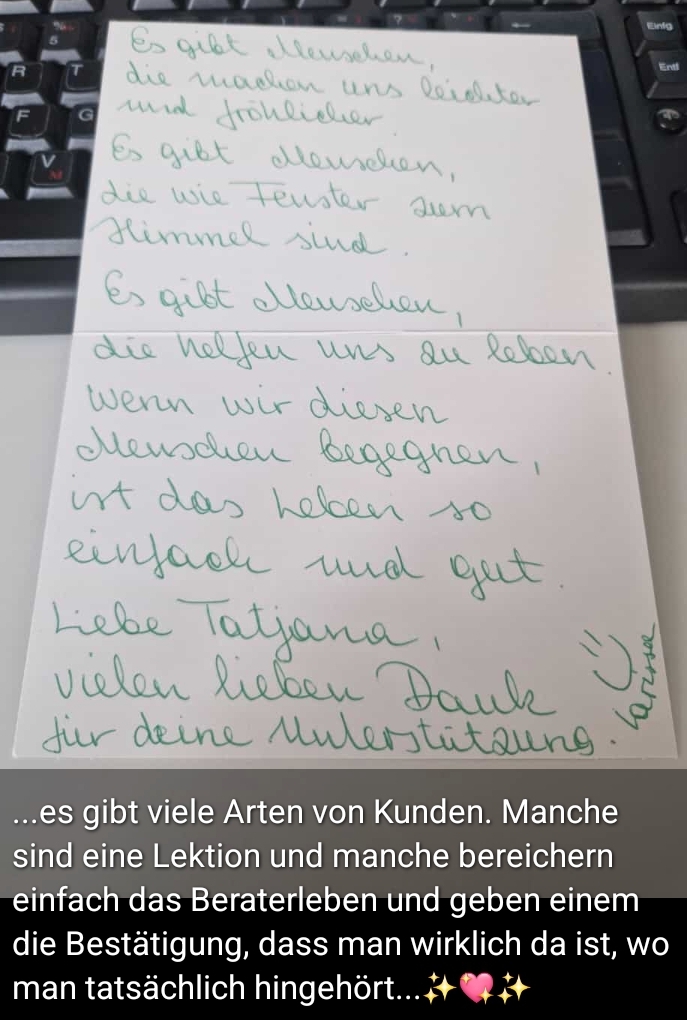 Es gibt Menschen,
die machen uns leichter
und fröhlicher
Es gibt Menschen,
die wie Fenster zum
Himmel sind.
Es gibt Menschen,
die helfen uns zu leben.
Wenn wir diesen
Menschen begegnen,
ist das Leben so
einfach und gut.
Liebe Tatjana,
vielen lieben Dank
für deine Unterstützung.
Larissa
Einfg
Entf
R
T
5
%
F
G
V
M
?
...es gibt viele Arten von Kunden. Manche
sind eine Lektion und manche bereichern
einfach das Beraterleben und geben einem
die Bestätigung, dass man wirklich da ist, wo
man tatsächlich hingehört...✨💖✨